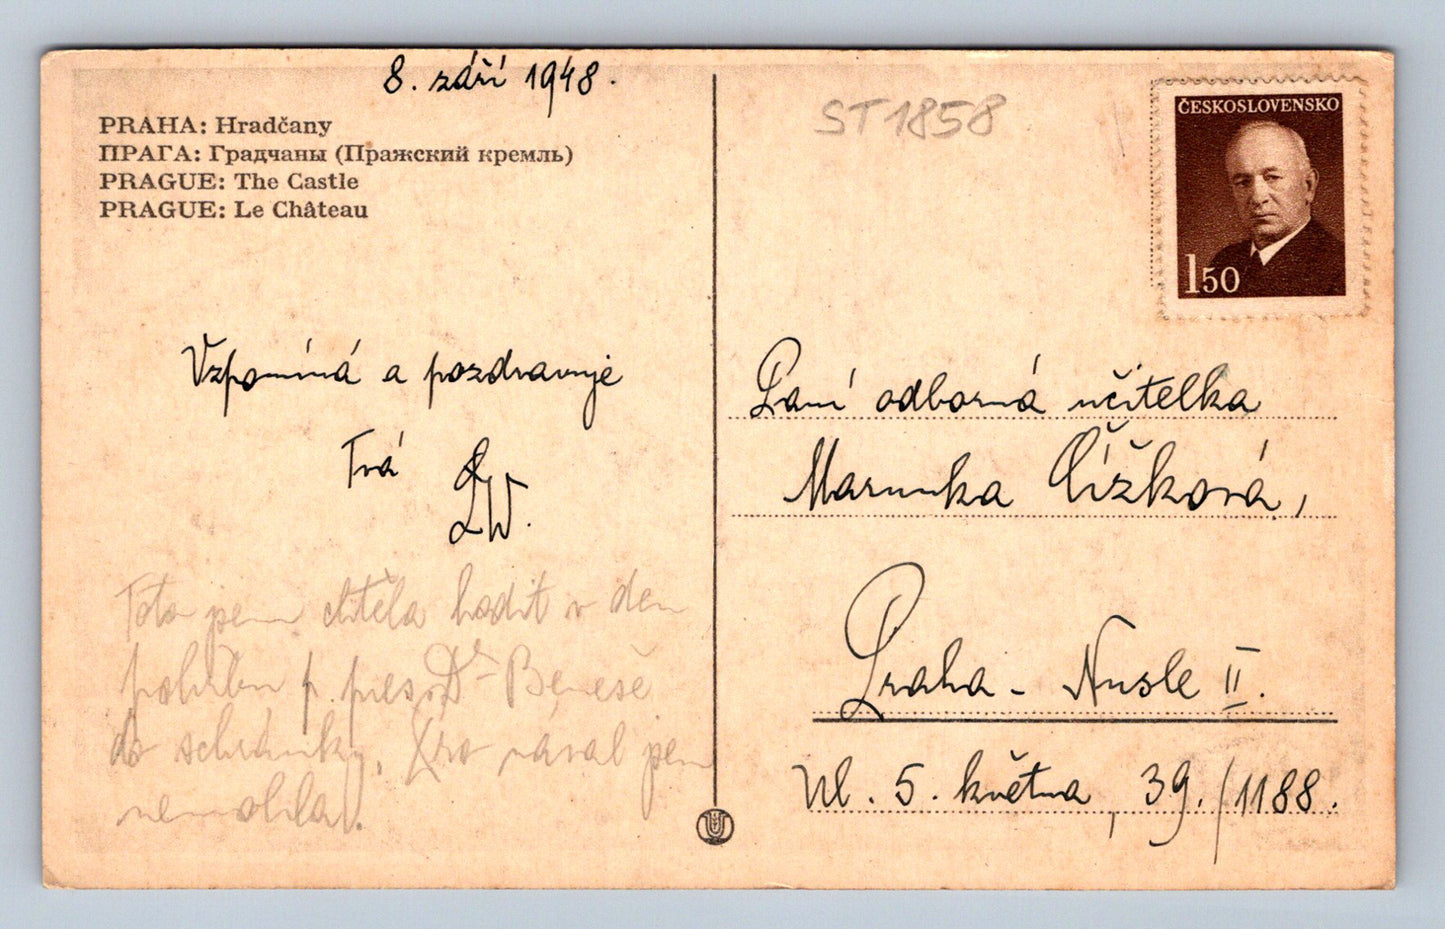 8. září 1948.
PRAHA: Hradčany
ПРАГА: Градчаны (Пражский кремль)
PRAGUE: The Castle
PRAGUE: Le Château
Vzpomíná a pozdravuje
Tvá
LW.
Toto jsem chtěla hodit v den
pohřbu p. pres. Dr Beneše
do schránky. Pro nával jsem
nemohla.
ST1858
ČESKOSLOVENSKO
150
Paní odborná učitelka
Marunka Čížková,
Praha - Nusle II.
Ul. 5. května, 39./1188.